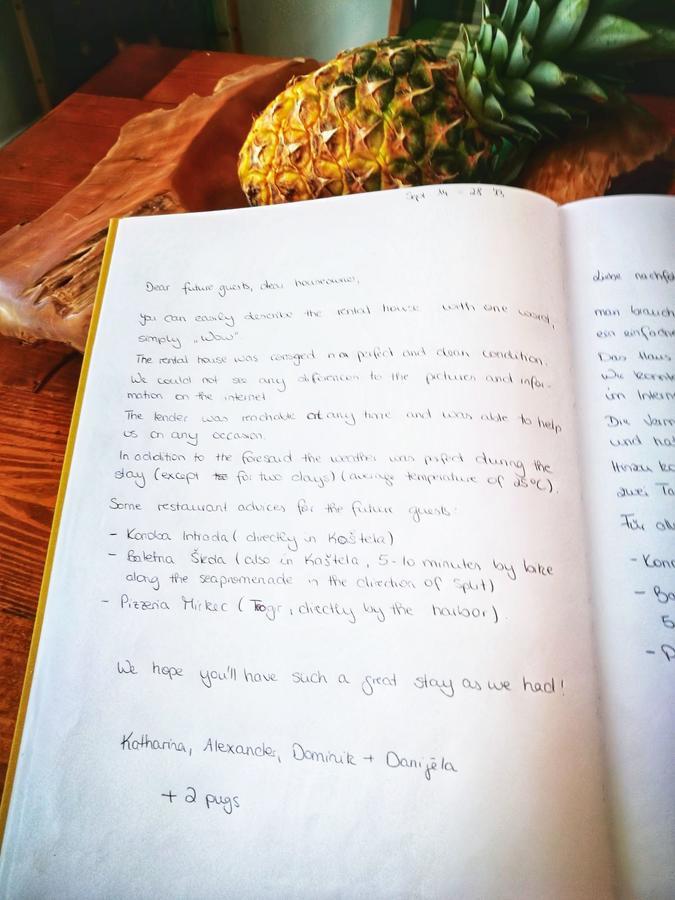 Sept 14 - 28
Dear future guests, dear houseowner,
you can easily describe the rental house with one word,
simply „Wow".
The rental house was in a perfect and clean condition.
We could not see any diferences to the pictures and infor-
mation on the internet
The lender was reachable at any time and was able to help
us on any occasion.
In addition to the foresaid the weather was perfect during the
stay (except for two days) (average temperature of 25°C).
Some restaurant advices for the future guests:
- Konoba Intrada (directly in Kaštela)
- Baletna Škola (also in Kaštela, 5-10 minutes by bike
along the seapromenade in the direction of Split)
- Pizzeria Mirkec (Trogir, directly by the harbor).
We hope you'll have such a great stay as we had!
Katharina, Alexander, Dominik + Danijela
+ 2 pugs
Liebe nachfol
man brauch
ein einfache
Das Haus
Wir konnte
im Intern
Die Verm
und hat
Hinzu ko
zwei Ta
Für all
- Kono
- Ba
5
- P